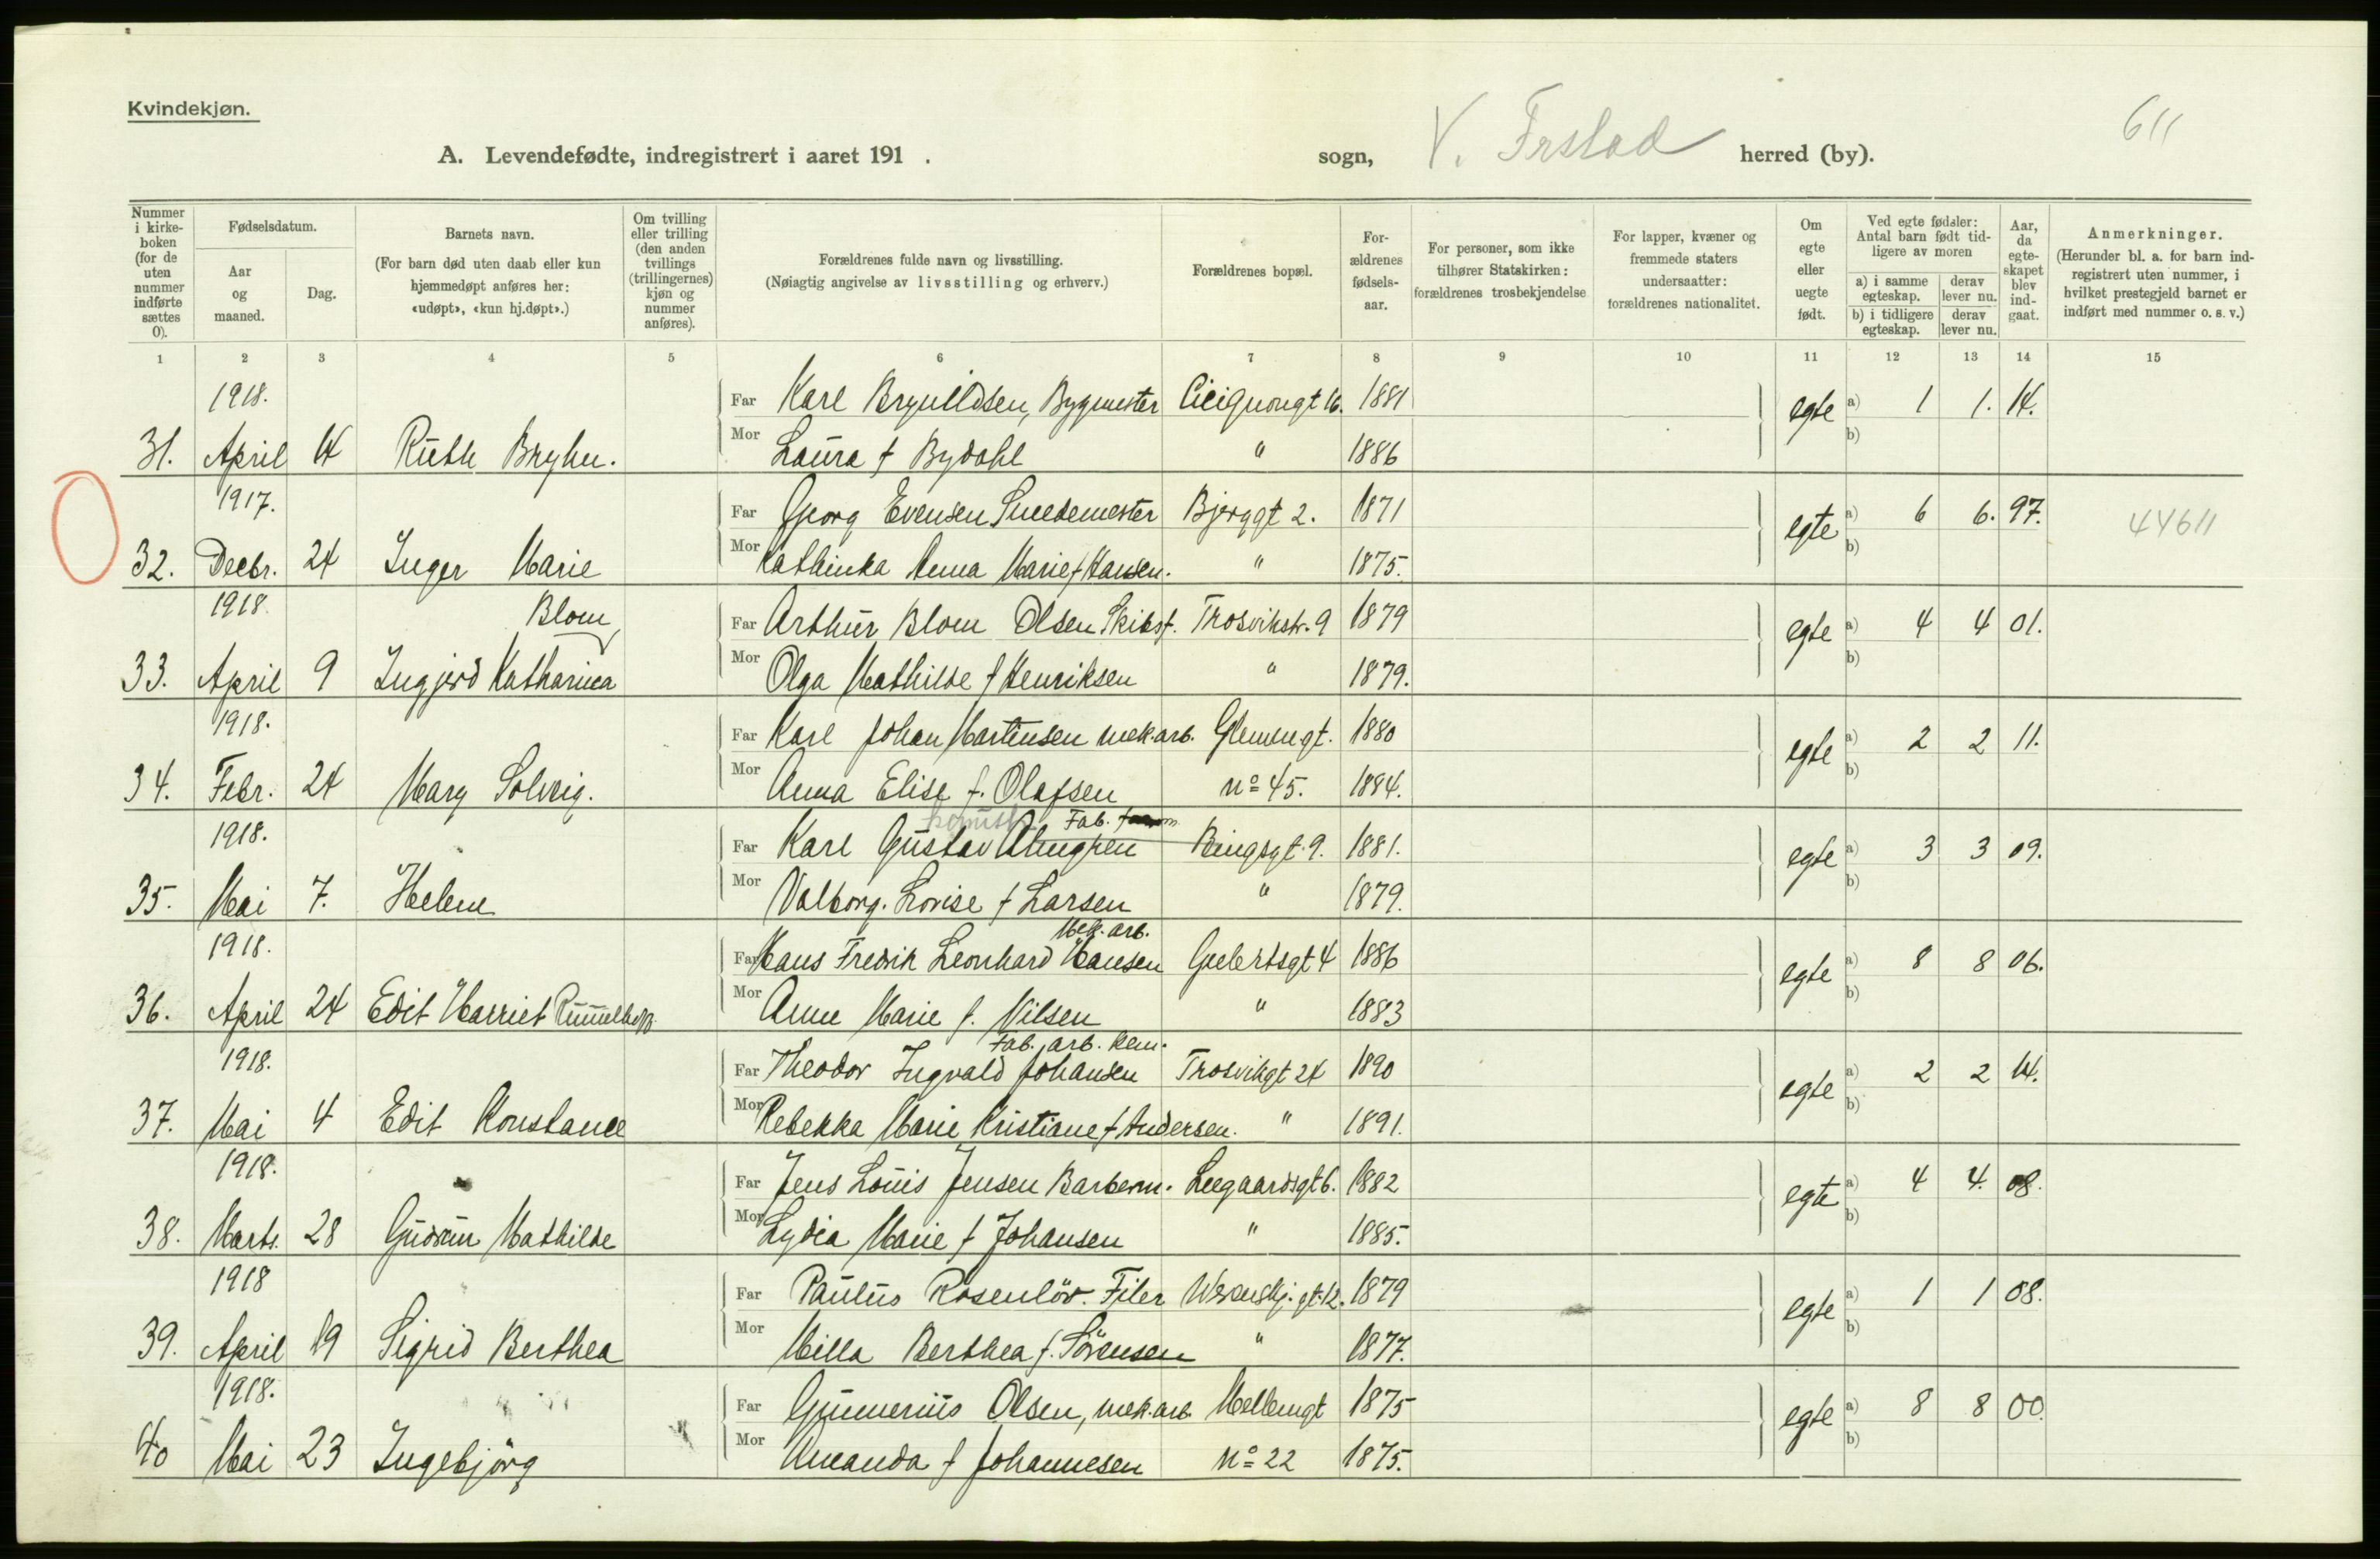 Kvindekjøn.
611
A. Levendefødte, indregistrert i aaret 191 . sogn, V. Frstad herred (by).
Nummer i kirkeboken (for de uten nummer indførte sættes 0).
Fødselsdatum.
Aar og maaned.
Dag.
Barnets navn.
(For barn død uten daab eller kun hjemmedøpt anføres her: «udøpt», «kun hj.døpt».)
Om tvilling eller trilling (den anden tvillings (trillingernes) kjøn og nummer anføres).
Forældrenes fulde navn og livsstilling.
(Nøiagtig angivelse av livsstilling og erhverv.)
Forældrenes bopæl.
Forældrenes fødselsaar.
For personer, som ikke tilhører Statskirken: forældrenes trosbekjendelse
For lapper, kvæner og fremmede staters undersaatter: forældrenes nationalitet.
Om egte eller uegte født.
Ved egte fødsler: Antal barn født tidligere av moren
a) i samme egteskap. derav lever nu.
b) i tidligere egteskap. derav lever nu.
Aar, da egteskapet blev indgaat.
Anmerkninger.
(Herunder bl. a. for barn indregistrert uten nummer, i hvilket prestegjeld barnet er indført med nummer o. s. v.)
1 2 3 4 5 6 7 8 9 10 11 12 13 14 15
1918. Far Karl Brynildsen, Bygmester 1881 egte a) 1 1. 14.
31. April 14 Ruth Bryhn. Mor Laura f Bydahl " 1886 b)
1917. Far Georg Evensen Smedemester Bjerggt 2. 1871 egte a) 6 6. 97. 44611
32. Decbr. 24 Inger Marie Mor Kathinka Anna Marie f Hansen. " 1875. b)
1918. Blom Far Arthur Blom Olsen Skibsf. Trosvikstr. 9 1879 egte a) 4 4 01.
33. April 9 Ingjerd Katharina Mor Olga Mathilde f Henriksen " 1879. b)
1918. Far Karl Johan Martinsen mek. arb. Glemmengt. 1880 egte a) 2 2 11.
34. Febr. 24 Mary Solveig. Mor Anna Elise f. Olafsen No 45. 1884. b)
1918. Fab.
Far Karl Gustav Almgren Ringsgt. 9. 1881. egte a) 3 3 09.
35. Mai 7. Helene Mor Valborg. Lovise f Larsen " 1879. b)
1918. Mek. arb.
Far Hans Fredrik Leonhard Hansen Geelertsgt 4 1886 egte a) 8 8 06.
36. April 24 Edit Harriet Mor Anne Marie f. Nilsen " 1883 b)
1918. Fab. arb. kem.
Far Theodor Ingvald Johansen Trosvikgt 24 1890 egte a) 2 2 14.
37. Mai 4 Edit Konstance Mor Rebekka Marie Kristiane f Andersen. " 1891. b)
1918. Far Jens Louis Jensen Barberm. Leegaardsgt 6. 1882 egte a) 4 4. 08.
38. Marts. 28 Gudrun Mathilde Mor Lydia Marie f Johansen " 1885. b)
1918 Far Paulus Rosenlöv. Filer 1879 egte a) 1 1 08.
39. April 19 Sigrid Berthea Mor Milla Berthea f. Sörensen " 1877. b)
1918. Far Gunnerius Olsen, mek. arb. Mellemgt 1875 egte a) 8 8 00.
40 Mai 23 Ingebjörg Mor Amanda f Johannesen No 22 1875. b)